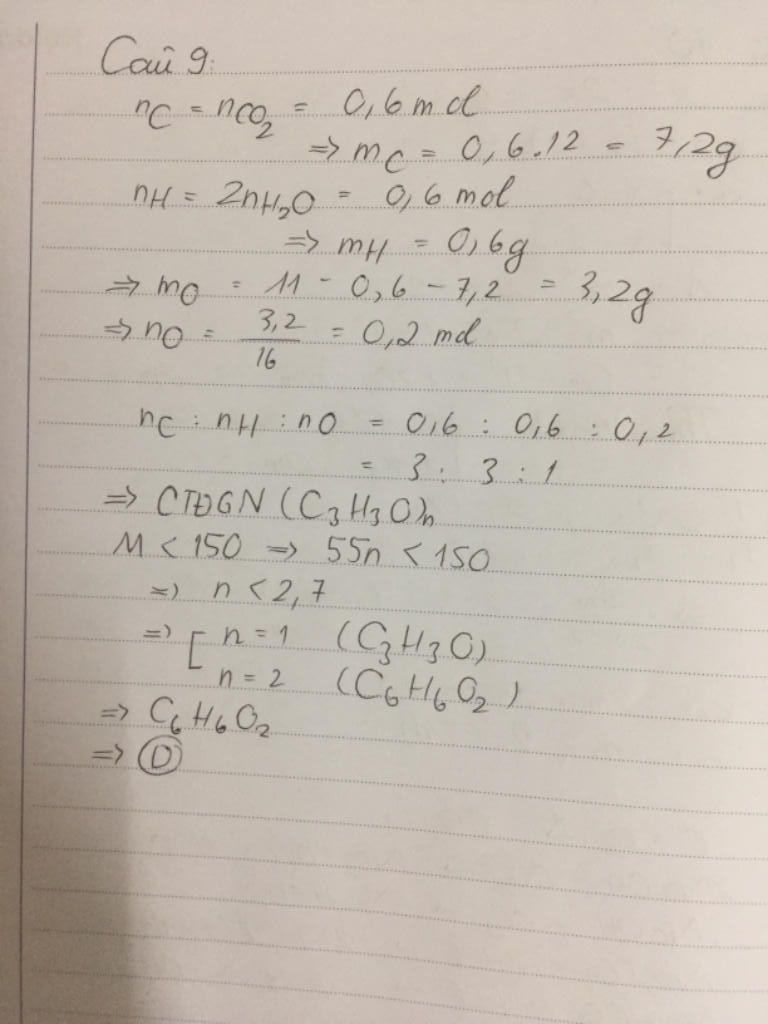 Câu 9:
nC = nCO₂ = 0,6 mol
=> mC = 0,6.12 = 7,2g
nH = 2nH₂O = 0,6 mol
=> mH = 0,6g
=> mO = 11 - 0,6 - 7,2 = 3,2g
=> nO = 3,2/16 = 0,2 mol
nC : nH : nO = 0,6 : 0,6 : 0,2
= 3 : 3 : 1
=> CTĐGN (C₃H₃O)n
M < 150 => 55n < 150
=> n < 2,7
=> [ n = 1 (C₃H₃O)
n = 2 (C₆H₆O₂)
=> C₆H₆O₂
=> D